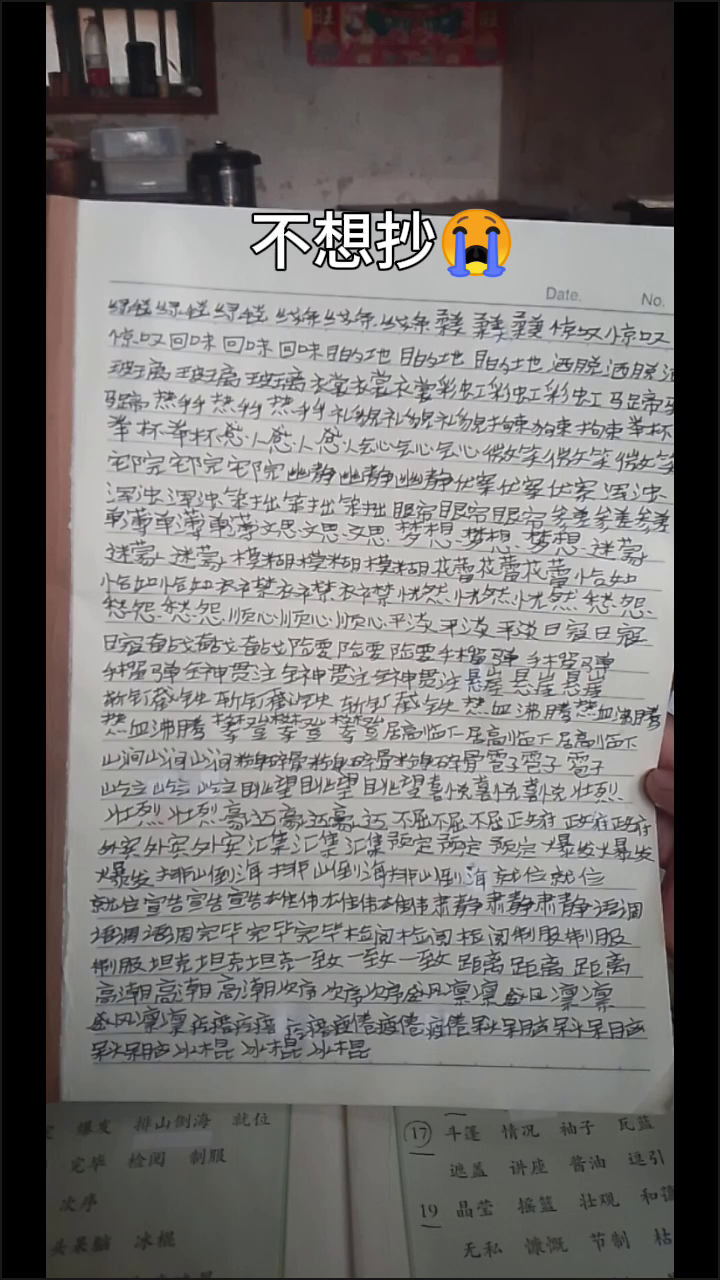 旺
旺
不想抄😭
Date.
No.
绿毯绿毯绿毯 线条线条线条 柔美 柔美 柔美 惊叹惊叹
惊叹 回味 回味 回味 目的地 目的地 目的地 洒脱 洒脱 洒
玻璃 玻璃 玻璃 衣裳衣裳衣裳 彩虹彩虹彩虹 马蹄马
蹄 热乎 热乎 热乎 礼貌礼貌礼貌 拘束拘束拘束 举杯
举杯举杯 感人 感人 感人 会心会心会心 微笑 微笑 微笑
宅院宅院宅院 幽静幽静幽静 伏案伏案伏案 浑浊
浑浊 浑浊 笨拙笨拙笨拙 眼帘眼帘眼帘 参差参差参差
单薄单薄单薄 文思文思文思 梦想 梦想 梦想 迷蒙
迷蒙 迷蒙 模糊模糊模糊 花蕾花蕾花蕾 恰如
恰如恰如 衣襟衣襟衣襟 恍然恍然恍然 愁怨
愁怨 愁怨 顺心顺心顺心 平淡平淡平淡 日寇日寇
日寇 奋战奋战奋战 险要 险要 险要 手榴弹 手榴弹
手榴弹 全神贯注 全神贯注 全神贯注 悬崖 悬崖 悬崖
斩钉截铁 斩钉截铁 斩钉截铁 热血沸腾 热血沸腾
热血沸腾 攀登攀登攀登 居高临下 居高临下 居高临下
山涧山涧山涧 粉身碎骨粉身碎骨粉身碎骨 雹子雹子 雹子
屹立 屹立 屹立 眺望 眺望 眺望 喜悦喜悦喜悦 壮烈
壮烈 壮烈 豪迈 豪迈 豪迈 不屈不屈不屈 政府 政府政府
外宾外宾外宾 汇集汇集汇集 预定预定 预定 爆发爆发
爆发 排山倒海 排山倒海 排山倒海 就位就位
就位 宣告宣告宣告 雄伟雄伟雄伟 肃静肃静肃静 语调
语调 语调 完毕 完毕 完毕 检阅 检阅 检阅 制服制服
制服 坦克坦克坦克 一致 一致 一致 距离 距离 距离
高潮高潮 高潮 次序 次序次序 威风凛凛 威风凛凛
威风凛凛 疙瘩疙瘩 疙瘩 疲倦疲倦疲倦 呆头呆脑 呆头呆脑
呆头呆脑 冰棍 冰棍 冰棍
爆发 排山倒海 就位
完毕 检阅 制服
次序
头呆脑 冰棍
17 斗篷 情况 袖子 瓦蓝
遮盖 讲座 酱油 逗引
19 晶莹 摇篮 壮观 和谐
无私 慷慨 节制 枯